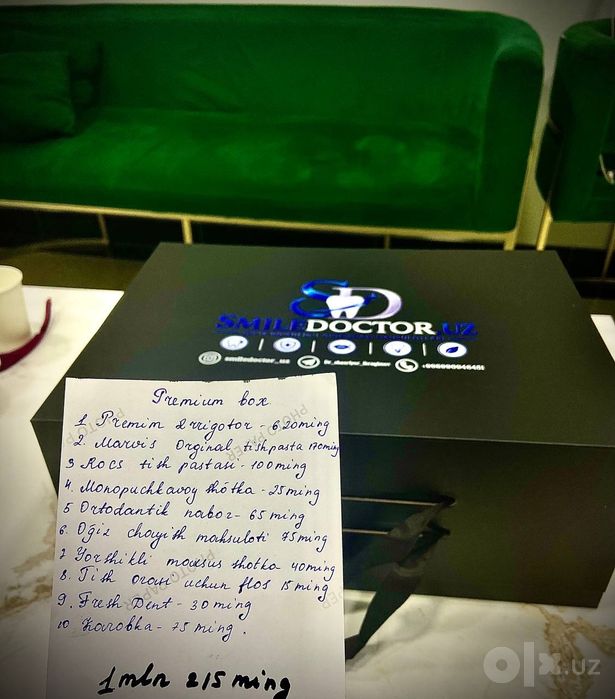 SD
SMILEDOCTOR.UZ
smiledoctor_uz
Premium box
1 Premim Irrigotor - 620ming
2. Marvis Orginal tish pasta 170ming
3 Rocs tish pastasi - 100ming
4. Monopuchkavoy shótka - 25ming
5 Ortodantik nabor - 65 ming
6. Oģiz chayish mahsuloti 75ming
7 Yorshikli maxsus shotka 40ming
8. Tish orasi uchun flos 15ming
9. Fresh Dent - 30ming
10. Karobka - 75 ming.
1mln 215 ming
PHOTO PAPER
olx.uz